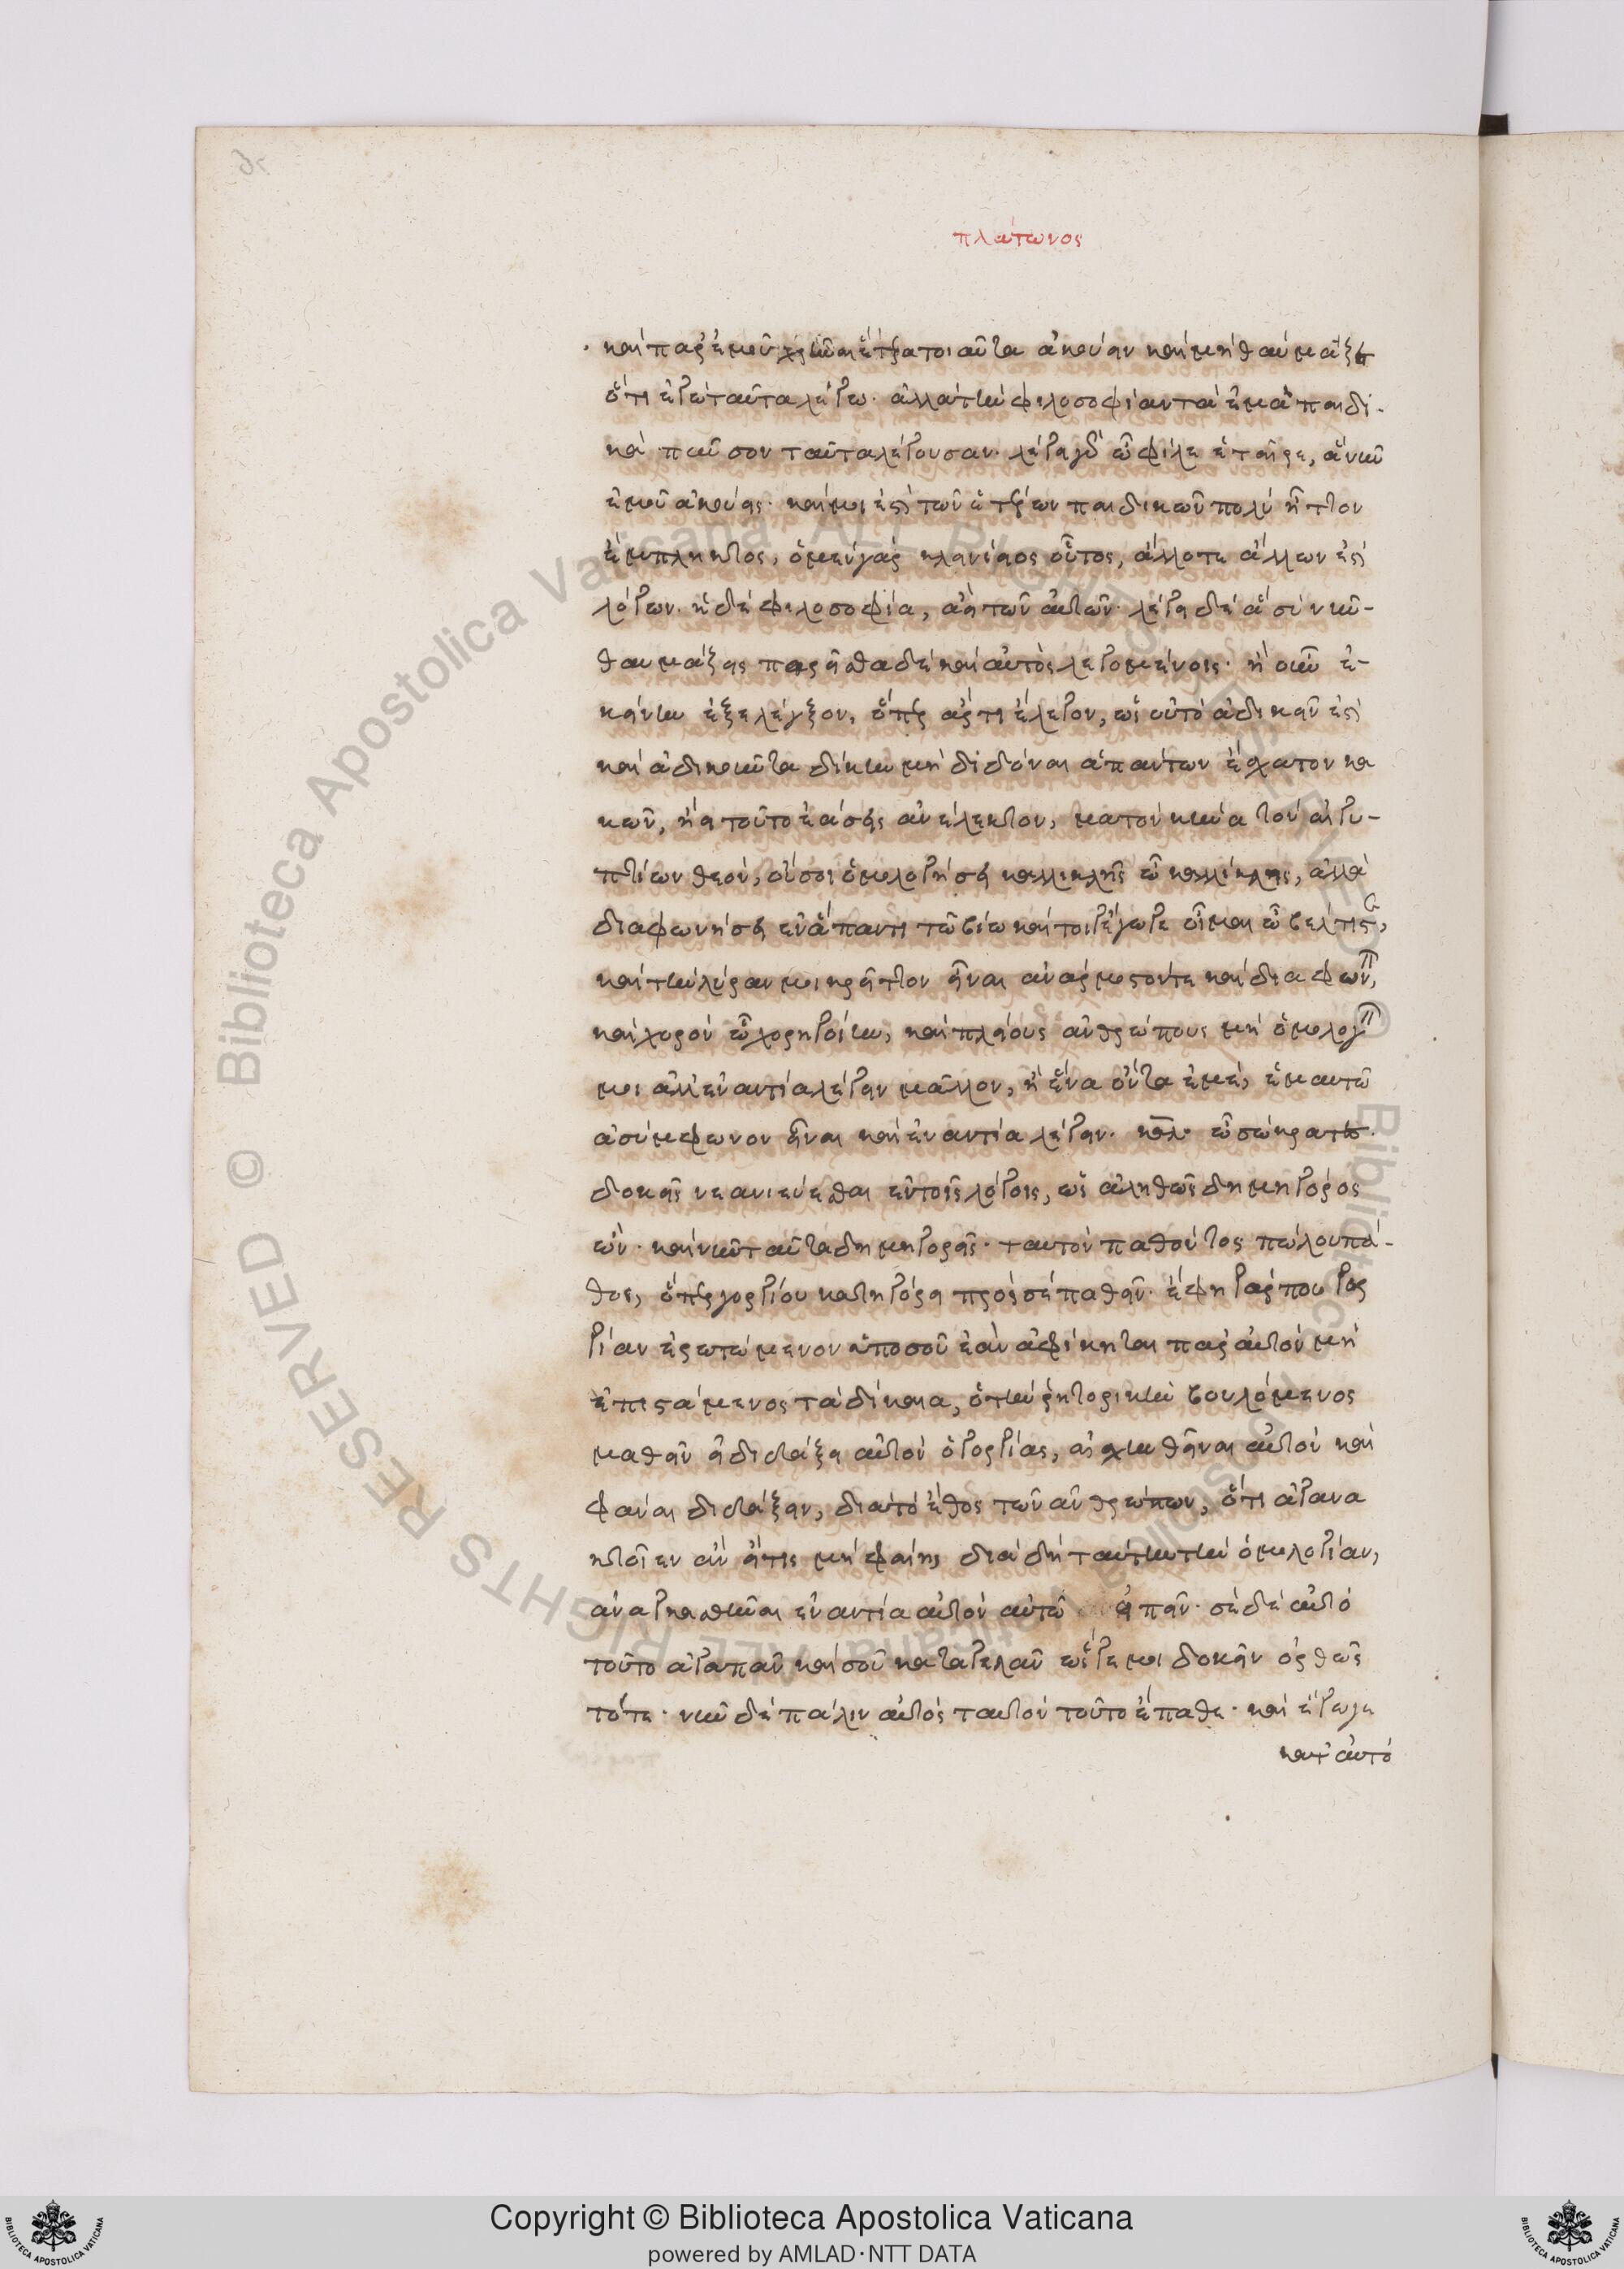 πλάτωνος
καὶ παρ' ἐμοῦ χρῆναι ἕτερα τοιαῦτα ἀκούειν καὶ μὴ θαύμαζε
ὅτι ἐγὼ ταῦτα λέγω· ἀλλὰ τὴν φιλοσοφίαν τὰ ἐμὰ παιδι-
κὰ παῦσον ταῦτα λέγουσαν· λέγει γὰρ ὦ φίλε ἑταῖρε, ἃ νῦν
ἐμοῦ ἀκούεις· καί μοι ἐστὶ τῶν ἑτέρων παιδικῶν πολὺ ἧττον
ἔμπληκτος, ὁ μὲν γὰρ κλεινίειος οὗτος, ἄλλοτε ἄλλων ἐστὶ
λόγων· ἡ δὲ φιλοσοφία, ἀεὶ τῶν αὐτῶν· λέγει δὲ ἃ σὺ νῦν
θαυμάζεις παρῆσθα δὲ καὶ αὐτὸς λεγομένοις· ἢ οὖν ἐ-
κείνην ἐξέλεγξον, ὅπερ ἄρτι ἔλεγον, ὡς οὐ τὸ ἀδικεῖν ἐστὶ
καὶ ἀδικοῦντα δίκην μὴ διδόναι ἁπάντων ἔσχατον κα
κῶν, ἢ εἰ τοῦτο ἐάσεις ἀνέλεγκτον, μὰ τὸν κύνα τὸν αἰγυ-
πτίων θεόν, οὔ σοι ὁμολογήσει καλλικλῆς ὦ καλλίκλεις, ἀλλὰ
διαφωνήσει ἐν ἅπαντι τῷ βίῳ καί τοι ἔγωγε οἶμαι ὦ βέλτιστε,
καὶ τὴν λύραν μοι κρεῖττον εἶναι ἀναρμοστεῖν τε καὶ διαφωνεῖν,
καὶ χορὸν ᾧ χορηγοίην, καὶ πλείους ἀνθρώπους μὴ ὁμολογεῖν
μοι ἀλλ' ἐναντία λέγειν μᾶλλον, ἢ ἕνα ὄντα ἐμέ, ἐμαυτῷ
ἀσύμφωνον εἶναι καὶ ἐναντία λέγειν· καλ· ὦ σώκρατες·
δοκεῖς νεανιεύεσθαι ἐν τοῖς λόγοις, ὡς ἀληθῶς δημηγόρος
ὤν· καὶ νῦν ταῦτα δημηγορεῖς· ταυτὸν παθόντος πώλου πά-
θος, ὅπερ γοργίου κατηγόρει πρὸς σὲ παθεῖν· ἔφη γάρ που γορ
γίαν ἐρωτώμενον ὑπὸ σοῦ ἐὰν ἀφίκηται παρ' αὐτὸν μὴ
ἐπιστάμενος τὰ δίκαια, ὁ τὴν ῥητορικὴν βουλόμενος
μαθεῖν εἰ διδάξει αὐτὸν ὁ γοργίας, αἰσχυνθῆναι αὐτὸν καὶ
φάναι διδάξειν, διὰ τὸ ἔθος τῶν ἀνθρώπων, ὅτι ἀγανα
κτοῖεν ἂν εἴ τις μὴ φαίη, διὰ δὴ ταύτην τὴν ὁμολογίαν,
ἀναγκασθῆναι ἐναντία αὐτὸν αὑτῷ εἰπεῖν· σὲ δὲ αὐτὸ
τοῦτο ἀγαπᾶν καὶ σοῦ καταγελᾶν ὥς γέ μοι δοκεῖν ὀρθῶς
τότε· νῦν δὲ πάλιν αὐτὸς ταυτὸν τοῦτο ἔπαθε· καὶ ἔγωγε
κατ' αὐτὸ
© Biblioteca Apostolica Vaticana ALL RIGHTS RESERVED
Copyright © Biblioteca Apostolica Vaticana
powered by AMLAD·NTT DATA
BIBLIOTECA APOSTOLICA VATICANA
BIBLIOTECA APOSTOLICA VATICANA